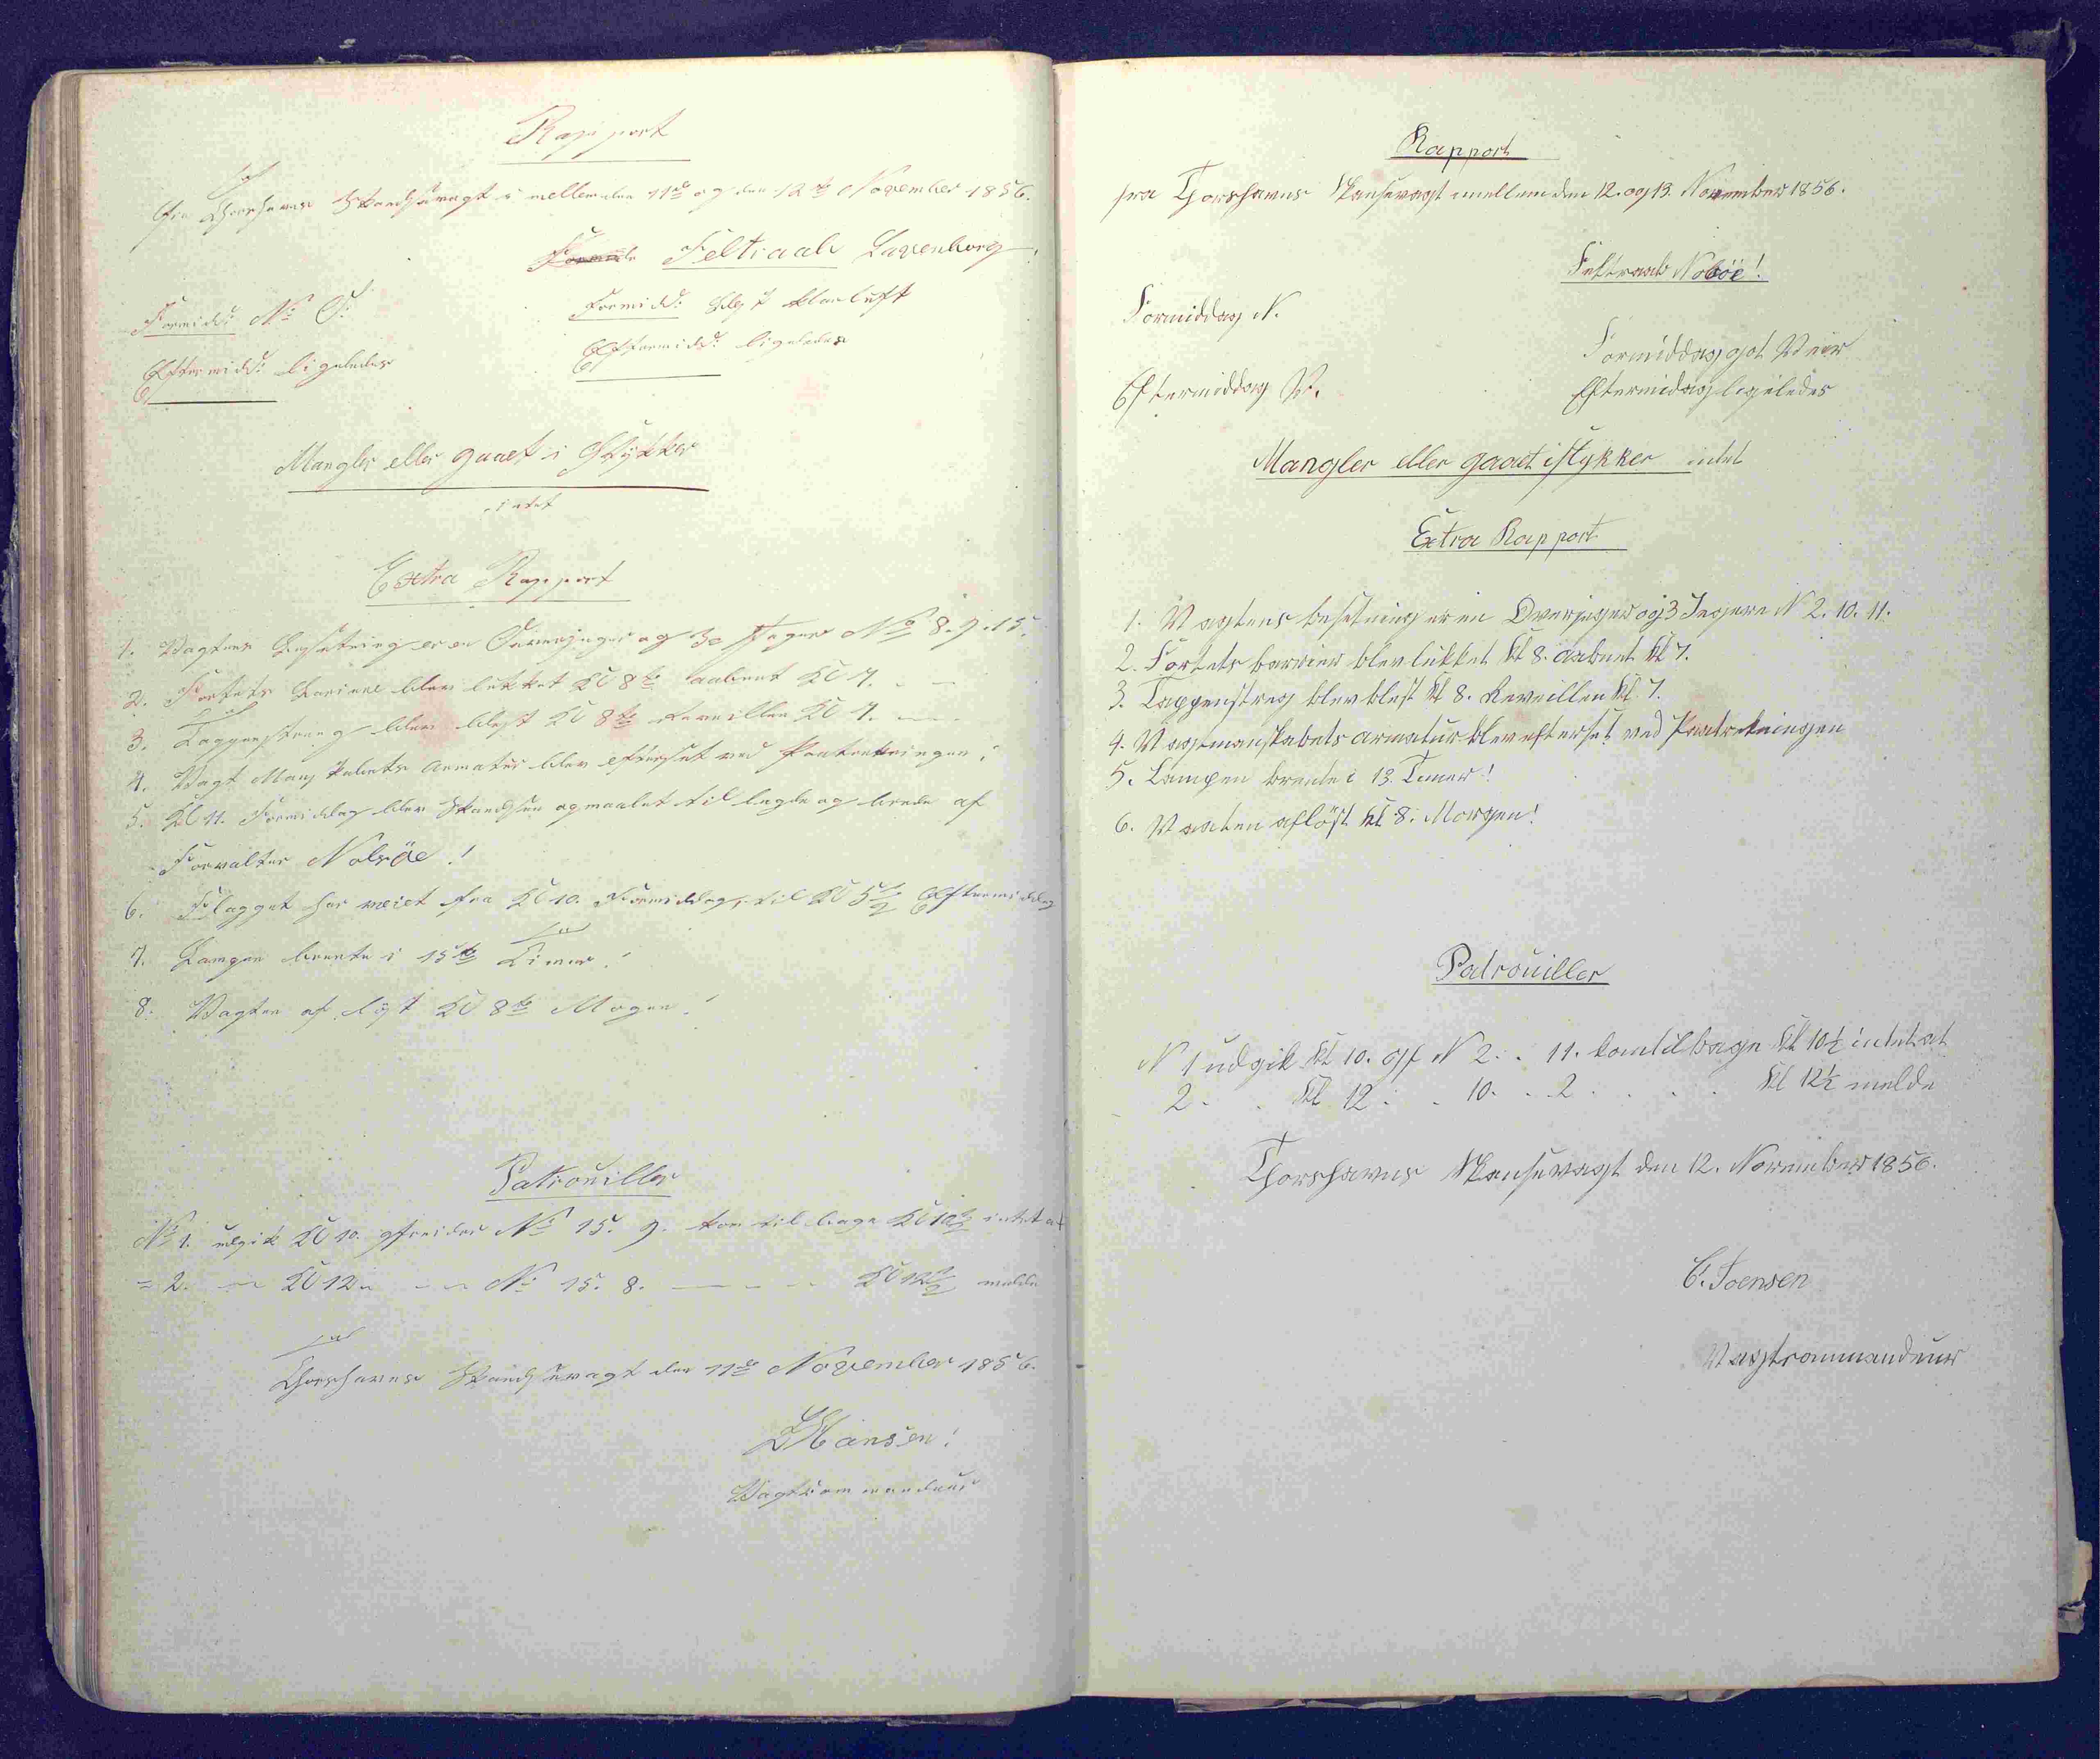 Rapport
fra Thorshavns Skandsevagt i mellem den 11te og den 12te November 1856.
Feltraab Laxenborg!
Formidd: No O:
Formidd: klar luft
Eftermidd: ligeledes
Eftermidd: ligeledes
Mangler eller gaaet i Stykker
intet
Extra Rapport
1. Vagtens Besetning er en Overjeger og 3e Jeger No 8. 9. 15.
2. Fortets Bariere blev lukket Kl 8te aabent Kl 7.
3. Tappenstreeg blev blæst Kl 8te Reveillen Kl 7.
4. Vagt Manskabets Armatur blev efterset ved Paatretningen;
5. Kl 11. Formiddag blev Skandsen opmaalet til legde og brede af
Forvalter Nolsöe!
6. Flagget har veiet fra Kl 10. Formiddag, til Kl 5½ Eftermiddag
7. Lampen brente i 15te Timer!
8. Vagten af löst Kl 8te Mogen!
Patrouiller
No 1. udgik Kl 10. gfreider No 15. 9. kom til bage Kl 10½ intet at
= 2. Kl 12 No 15. 8. Kl 12½ melde
Thorshavns Skandsevagt den 11te November 1856.
Hansen!
Vagtkommandeur
Rapport
fra Thorshavns Skansevagt mellem den 12. og 13. November 1856.
Feltraab Nolsöe!
Formiddag N.
Formiddag got Veir
Eftermiddag
Eftermidag ligeledes
Mangler eller gaaet istykker intet
Extra Rapport
1. Vagtens besetning er en Overjeger og 3 Jegere N 2. 10. 11.
2. Fortets barrier blev lukket Kl 8. aabnet Kl 7.
3. Tappenstreg blev blest Kl 8. Reveillen Kl 7.
4. Vagtmanskabets armatur blev efterset ved Paatretningen
5. Lampen brente i 13 Timer!
6. Vagten aflöst Kl 8. Morgen!
Patrouiller
N 1 udgik Kl 10. gf N 2. . 11. kom tilbage Kl 10½ intet at
2. . Kl 12 . . 10. . 2. . . . Kl 12½ melde
Thorshavns Skansevagt den 12. November 1856.
C. Joensen
Vagtcommandeur